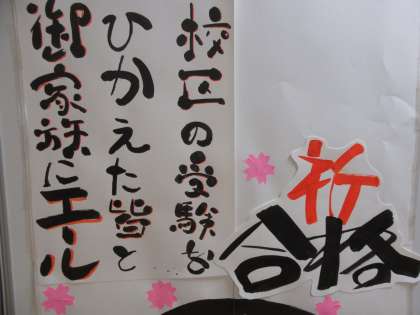 校区の受験を
ひかえた皆と
御家族にエール
祈
合格